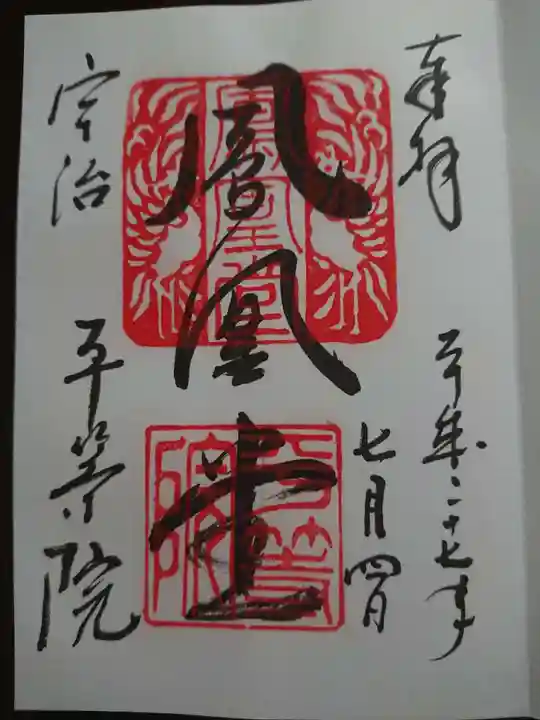 奉拝
平成二十七年
七月四日
鳳凰堂
鳳凰堂
平等院
宇治
平等院